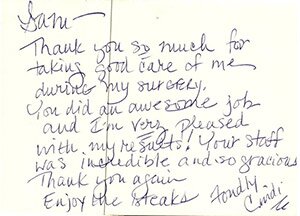 Sam—
Thank you so much for
taking good care of me
during my surgery.
You did an awesome job
and I'm very pleased
with my results! Your staff
was incredible and so gracious
Thank you again
Enjoy the steaks Fondly
Cindi